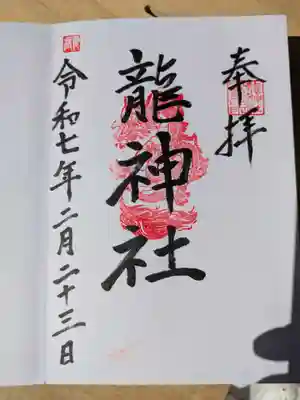 奉拝
龍神社
令和七年二月二十三日